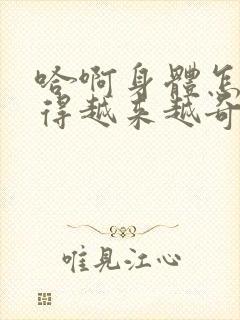 哈啊身體怎
得越来越奇
唯見江心